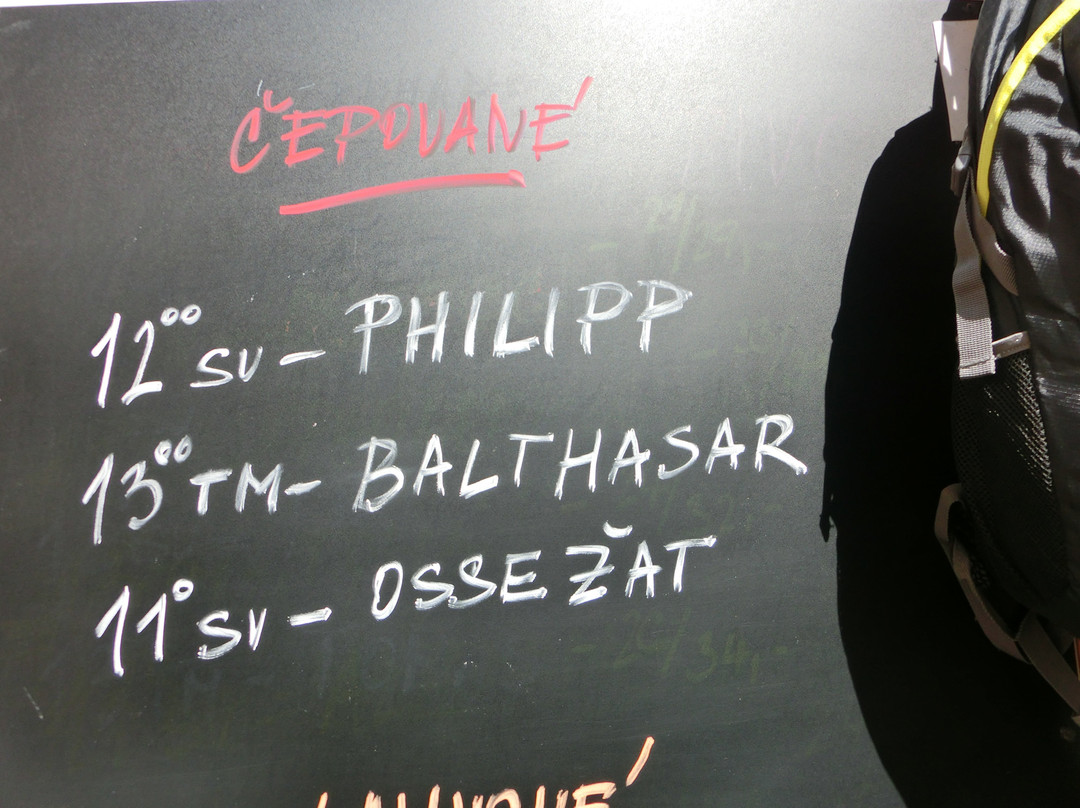 ČEPOVANÉ
12°° SV - PHILIPP
13°° TM - BALTHASAR
11° SV - OSSE ŽAT